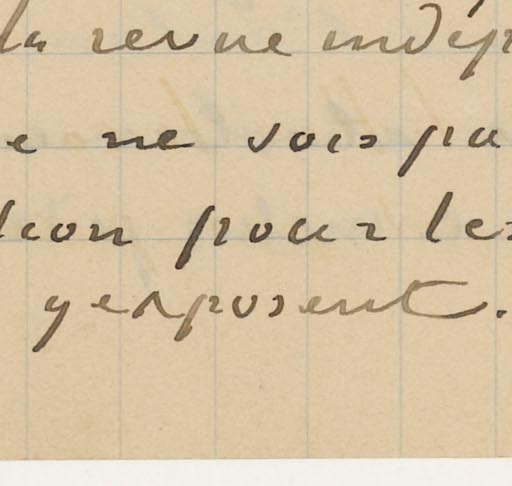 la revue indép
e ne vois pa
tion pour les
y exposent.